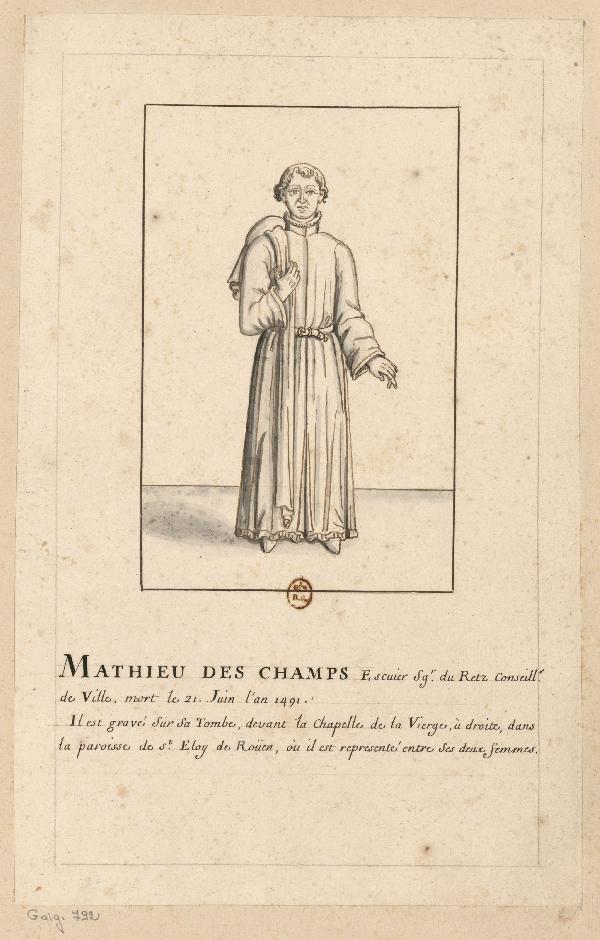 MATHIEU DES CHAMPS Escuier Sgr. du Retz Conseillr.
de Ville, mort le 21. Juin l'an 1491.
Il est gravé Sur Sa Tombe, devant la Chapelle de la Vierge, à droite, dans
la paroisse de st. Eloy de Roüen, où il est representé entre Ses deux femmes.
Gaig. 792